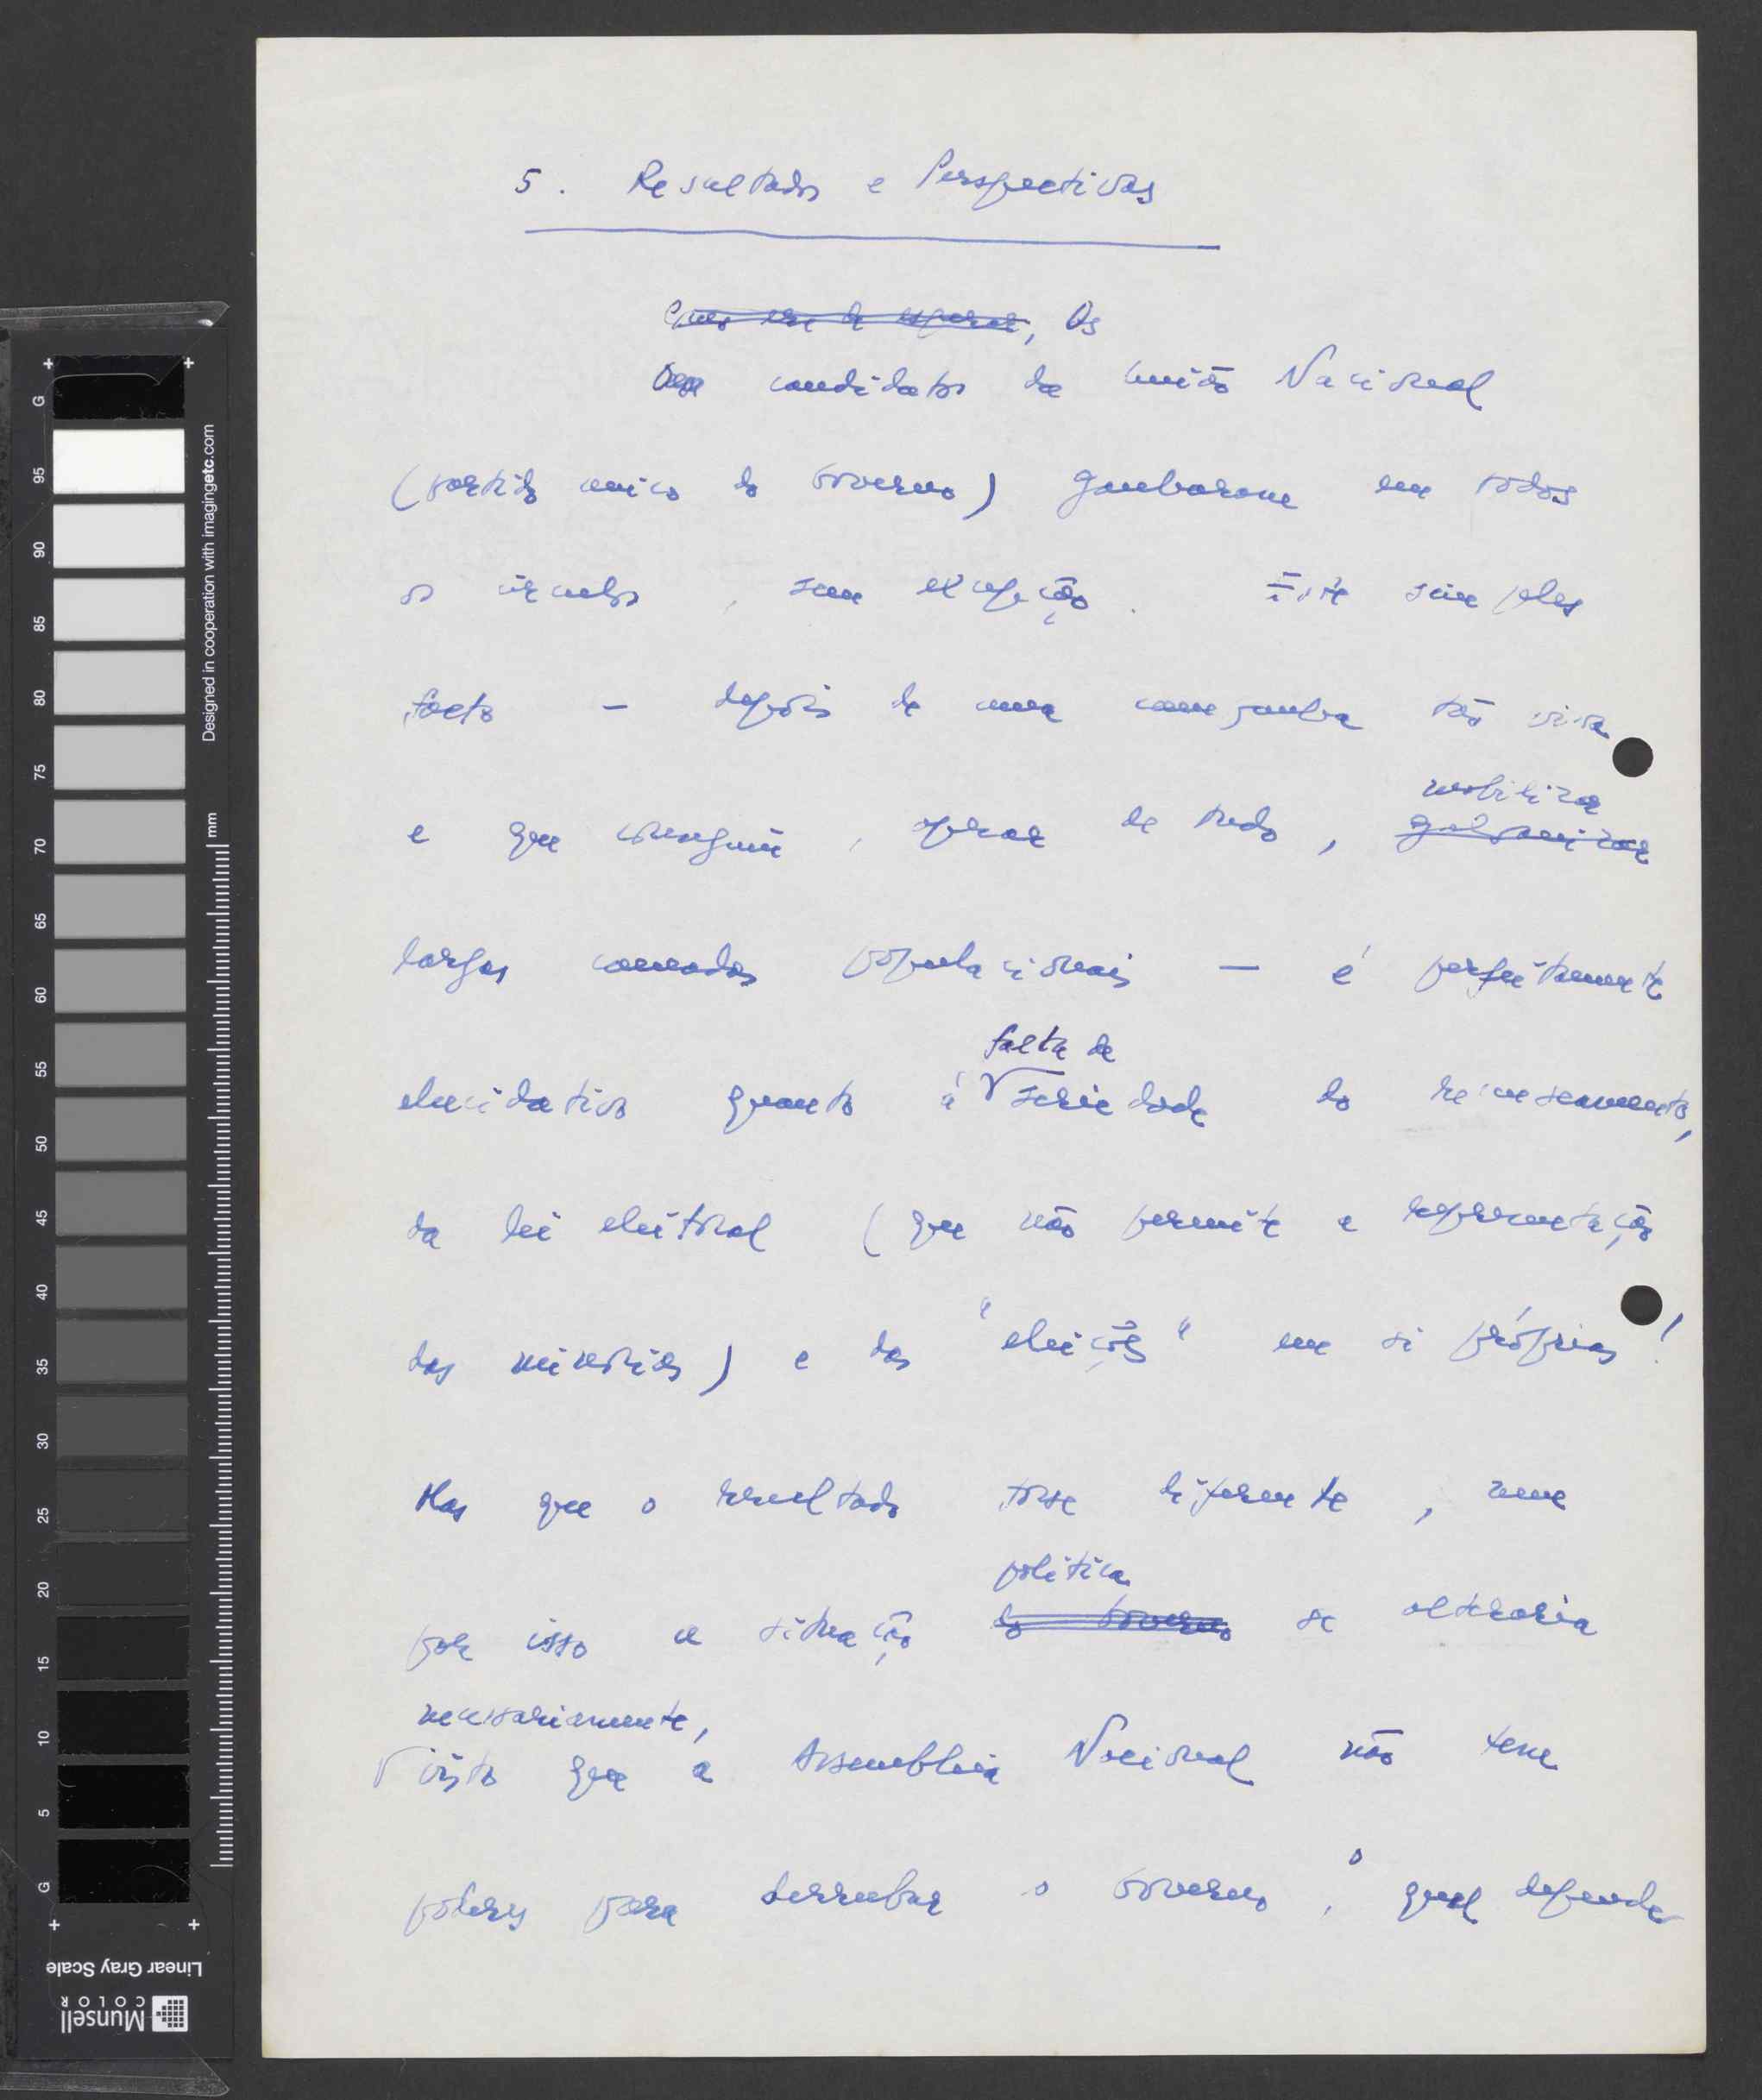 5. Resultados e Perspectivas
Como era de esperar, Os
candidatos da União Nacional
(partido único do Governo) ganharam em todos
os círculos, sem excepção. Êste simples
facto — depois de uma campanha tão viva
mobilizar
e que conseguiu, apesar de tudo, galvanizar
largas camadas populacionais — é perfeitamente
falta de
elucidativo quanto à seriedade do recenseamento,
da lei eleitoral (que não permite a representação
das minorias) e das "eleições" em si próprias!
Mas que o resultado fosse diferente, nem
política
por isso a situação do Governo se alteraria
necessariamente,
visto que a Assembleia Nacional não tem
poderes para derrubar o Governo, o qual depende
G
95
90
85
80
75
70
65
60
55
50
45
40
35
30
25
20
15
10
5
G
mm
Designed in cooperation with imagingetc.com
Linear Gray Scale
Munsell
COLOR